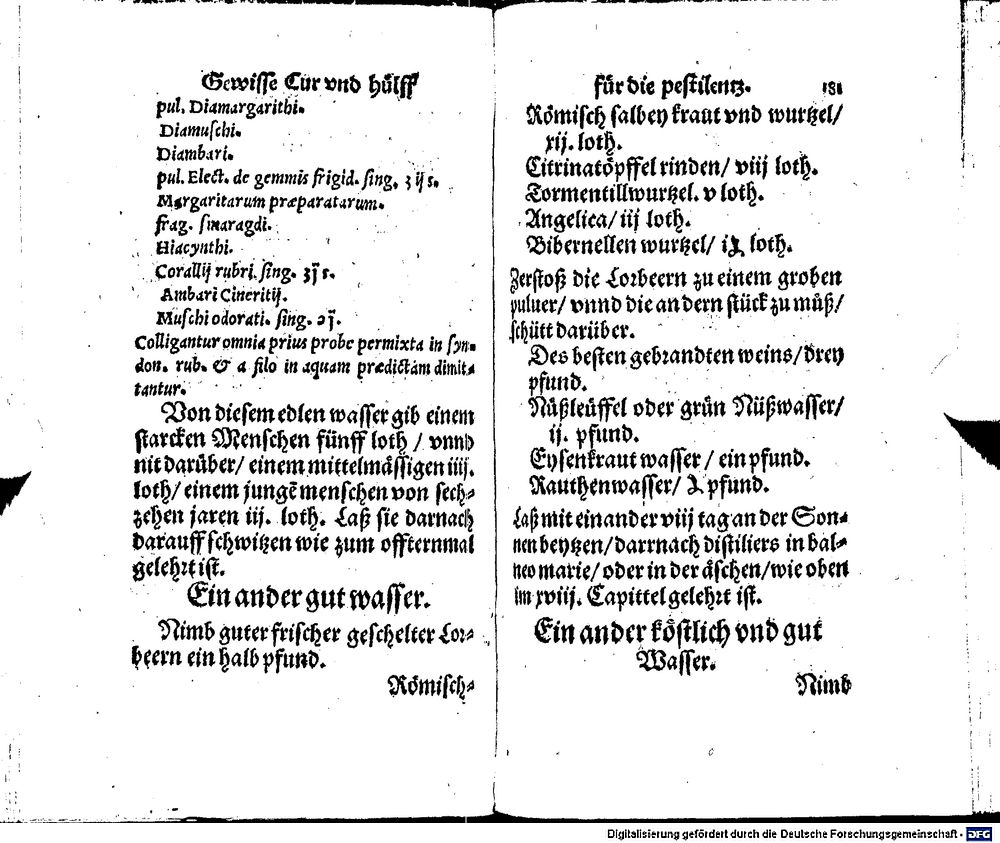 Gewisse Cur vnd hülff
pul. Diamargarithi.
Diamuſchi.
Diambari.
pul. Elect. de gemmis frigid. ſing. ʒ ij s.
Margaritarum præparatarum.
frag. ſmaragdi.
Hiacynthi.
Corallij rubri. ſing. ʒj s.
Ambari Cineritij.
Muſchi odorati. ſing. ɔj.
Colligantur omnia prius probe permixta in ſyn⸗
don. rub. & a filo in aquam prædictam dimit⸗
tantur.
Von dieſem edlen waſſer gib einem
ſtarcken Menſchen fünff loth / vnnd
nit darüber/ einem mittelmäſſigen iiij.
loth/ einem jungē menſchen von ſech⸗
zehen jaren iij. loth. Laß ſie darnach
darauff ſchwitzen wie zum offternmal
gelehrt iſt.
Ein ander gut waſſer.
Nimb guter friſcher geſchelter Lor⸗
beern ein halb pfund.
Römiſch⸗
für die peſtilentz. 181
Römiſch ſalbey kraut vnd wurtzel/
xij. loth.
Citrinatöpffel rinden/ viij loth.
Tormentillwurtzel. v loth.
Angelica/ iij loth.
Bibernellen wurtzel/ i loth.
Zerſtoß die Lorbeern zu einem groben
puluer/ vnnd die andern ſtück zu müß/
ſchütt darüber.
Des beſten gebrandten weins/ drey
pfund.
Nüßleüffel oder grün Nüßwaſſer/
ij. pfund.
Eyſenkraut waſſer / ein pfund.
Rauthenwaſſer/ pfund.
Laß mit einander viij tag an der Son⸗
nen beytzen/ darrnach diſtiliers in bal⸗
neo marie/ oder in der äſchen/ wie oben
im xviij. Capittel gelehrt iſt.
Ein ander köſtlich vnd gut
Waſſer.
Nimb
Digitalisierung gefördert durch die Deutsche Forschungsgemeinschaft - DFG